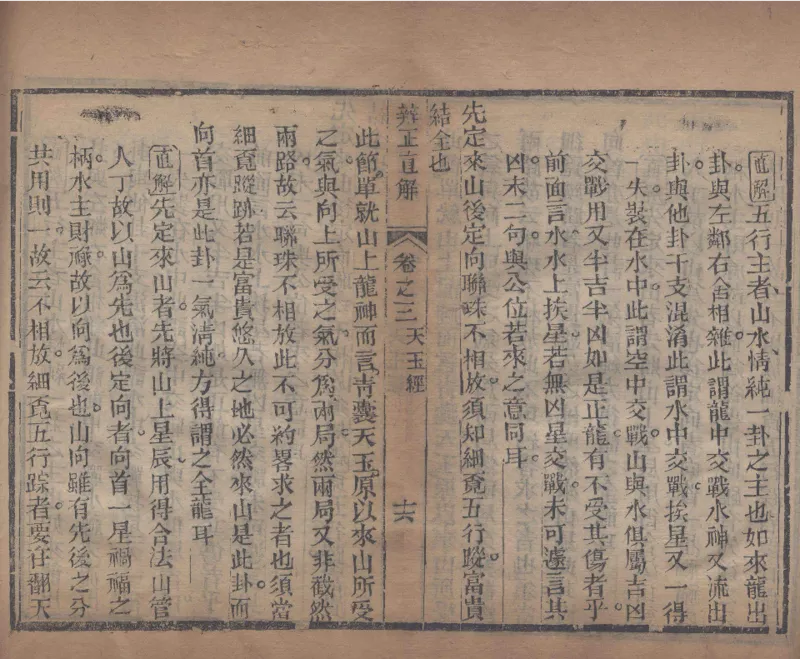 直解五行主者山水情純一卦之主也如來龍出
卦與左鄰右舍相雜此謂龍中交戰水神又流出
卦與他卦干支混淆此謂水中交戰挨星又一得
一失裝在水中此謂空中交戰山與水俱屬吉凶
交戰用又半吉半凶如是正龍有不受其傷者乎
前面言水水上挨星若無凶星交戰未可遽言其
凶末二句與公位若來之意同耳
先定來山後定向聯珠不相放須知細覓五行蹤富貴
結全也
辨正直解 卷之三 天玉經 十六
此節單就山上龍神而言青囊天玉原以來山所受
之氣與向上所受之氣分為兩局然兩局又非截然
兩路故云聯珠不相放此不可約畧求之者也須當
細覓蹤跡若是富貴悠久之地必然來山是此卦而
向首亦是此卦一氣清純方得謂之全龍耳
直解先定來山者先將山上星辰用得合法山管
人丁故以山為先也後定向者向首一星禍福之
柄水主財祿故以向為後也山向雖有先後之分
共用則一故云不相放細覓五行踪者要在翻天